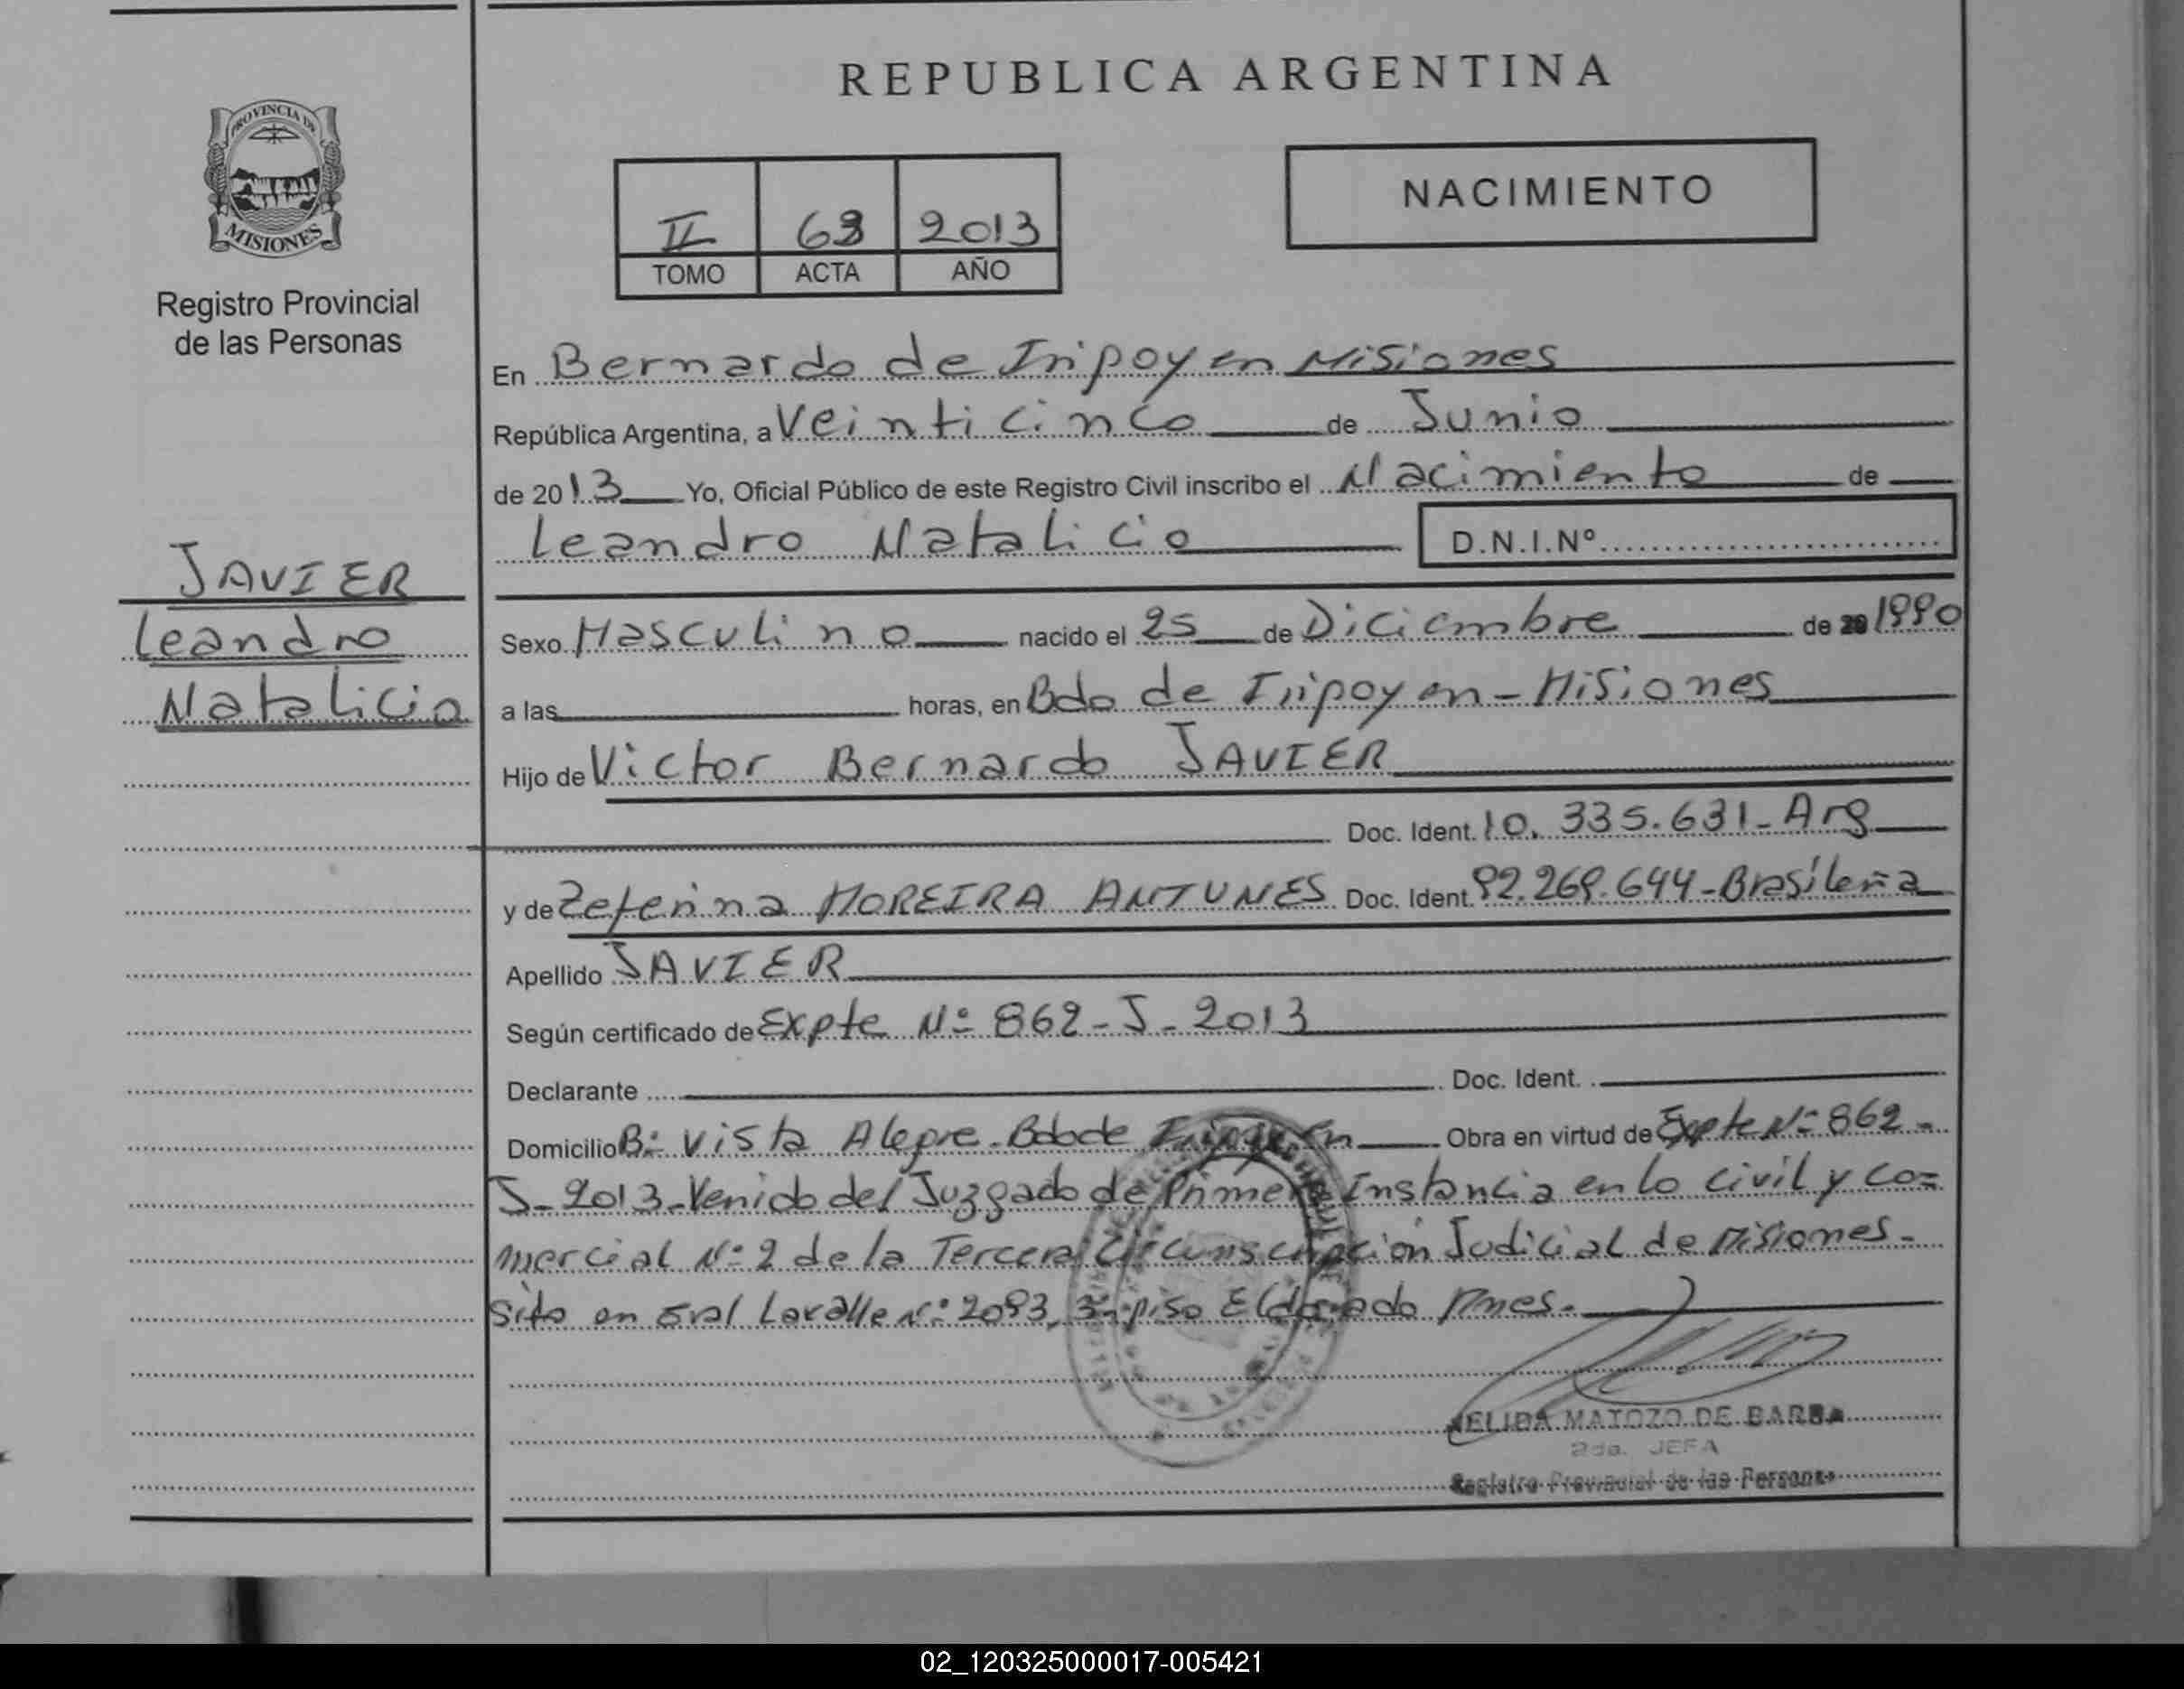 REPUBLICA ARGENTINA
PROVINCIA DE
MISIONES
Registro Provincial
de las Personas
NACIMIENTO
II 63 2013
TOMO ACTA AÑO
En Bernardo de Iripoyen Misiones
República Argentina, a Veinticinco de Junio
de 2013 Yo, Oficial Público de este Registro Civil inscribo el Nacimiento de
Leandro Natalicio D.N.I.Nº
JAVIER
Leandro
Natalicio
Sexo Masculino nacido el 25 de Diciembre de 20 1990
a las horas, en Bdo de Iripoyen - Misiones
Hijo de Victor Bernardo JAVIER
Doc. Ident. 10.335.631- Arg
y de Zeferina MOREIRA ANTUNES Doc. Ident. 92.269.644-Brasileña
Apellido JAVIER
Según certificado de Expte Nº 862-J-2013
Declarante Doc. Ident.
Domicilio Bº Vista Alegre-Bdo de Iripoyen Obra en virtud de Expte Nº 862-
J-2013-Venido del Juzgado de Primera Instancia en lo Civil y Co=
mercial Nº 2 de la Tercera Circunscripción Judicial de Misiones-
Sito en Gral Lavalle Nº 2093, 3er piso Eldorado Mnes.
NELIDA MATOZO DE BARBA
2da. JEFA
Registro Provincial de las Personas
02_120325000017-005421